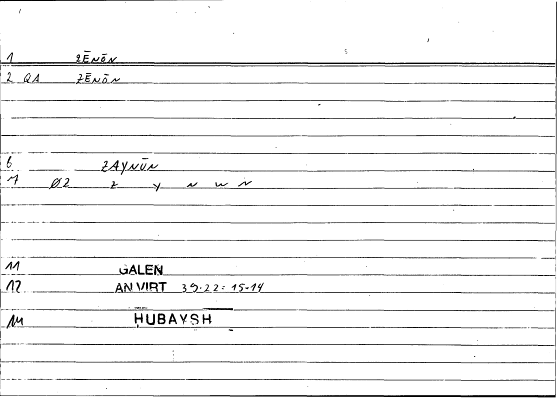 1 ZĒNŌN
2 QA ZĒNŌN
6 ZAYNŪN
7 Ø2 z y n w n
11 GALEN
12 AN VIRT 39.22 = 15.14
14 ḤUBAYSH